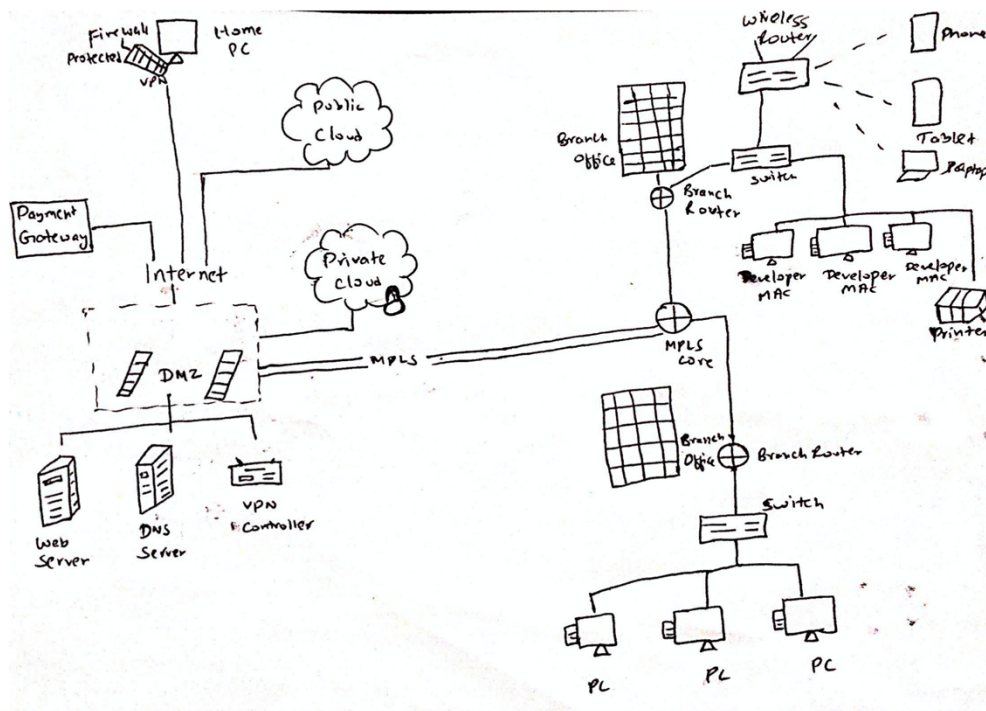 Firewall
Protected
VPN
Home
PC
Public
Cloud
Payment
Gateway
Internet
Private
Cloud
DMZ
MPLS
Web
Server
DNS
Server
VPN
Controller
Wireless
Router
Phone
Tablet
Laptop
Switch
Branch
Office
Branch
Router
Developer
MAC
Developer
MAC
Developer
MAC
Printer
MPLS
Core
Branch
Office
Branch Router
Switch
PC
PC
PC